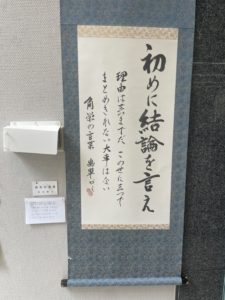 初めに結論を言え
理由は三つまでだ この世に三つで
まとめきれない大事はない
角栄の言葉